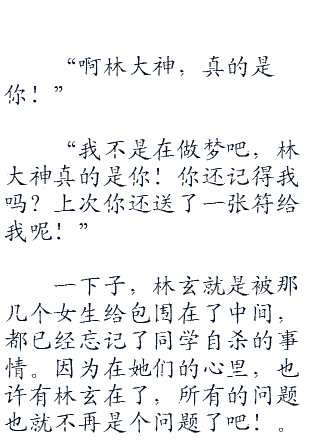 “啊林大神，真的是
你！”
“我不是在做梦吧，林
大神真的是你！你还记得我
吗？上次你还送了一张符给
我呢！”
一下子，林玄就是被那
几个女生给包围在了中间，
都已经忘记了同学自杀的事
情。因为在她们的心里，也
许有林玄在了，所有的问题
也就不再是个问题了吧！。